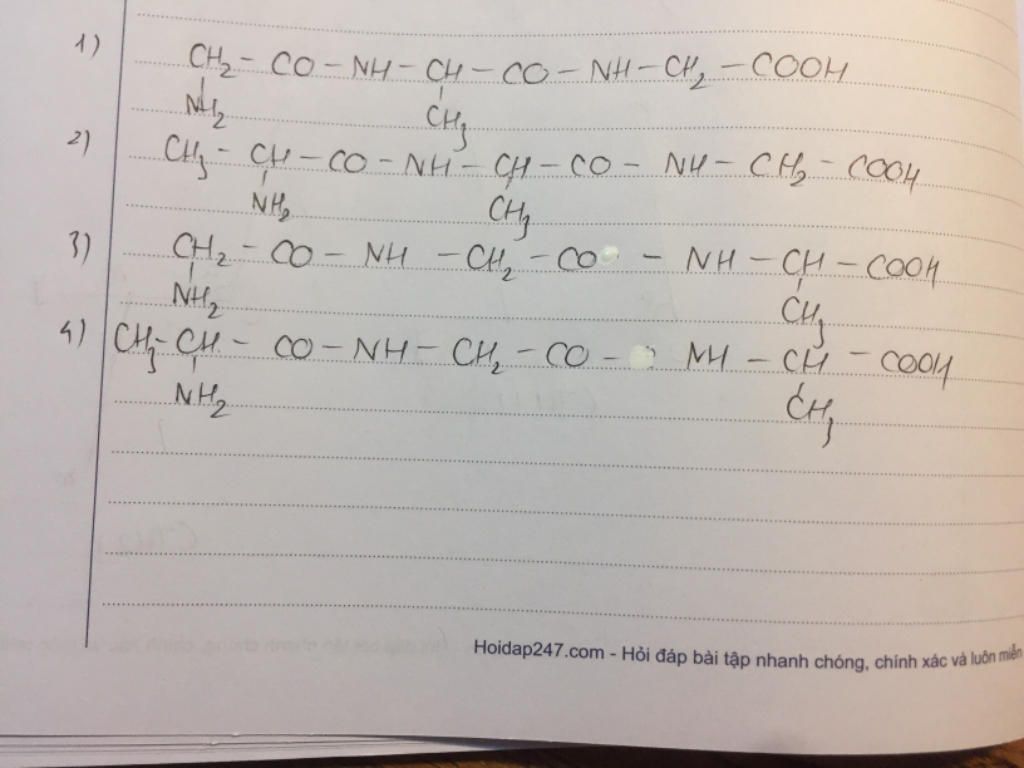 1) CH₂ - CO - NH - CH - CO - NH - CH₂ - COOH
NH₂ CH₃
2) CH₃ - CH - CO - NH - CH - CO - NH - CH₂ - COOH
NH₂ CH₃
3) CH₂ - CO - NH - CH₂ - CO - NH - CH - COOH
NH₂ CH₃
4) CH₃ - CH - CO - NH - CH₂ - CO - NH - CH - COOH
NH₂ CH₃
Hoidap247.com - Hỏi đáp bài tập nhanh chóng, chính xác và luôn miễn